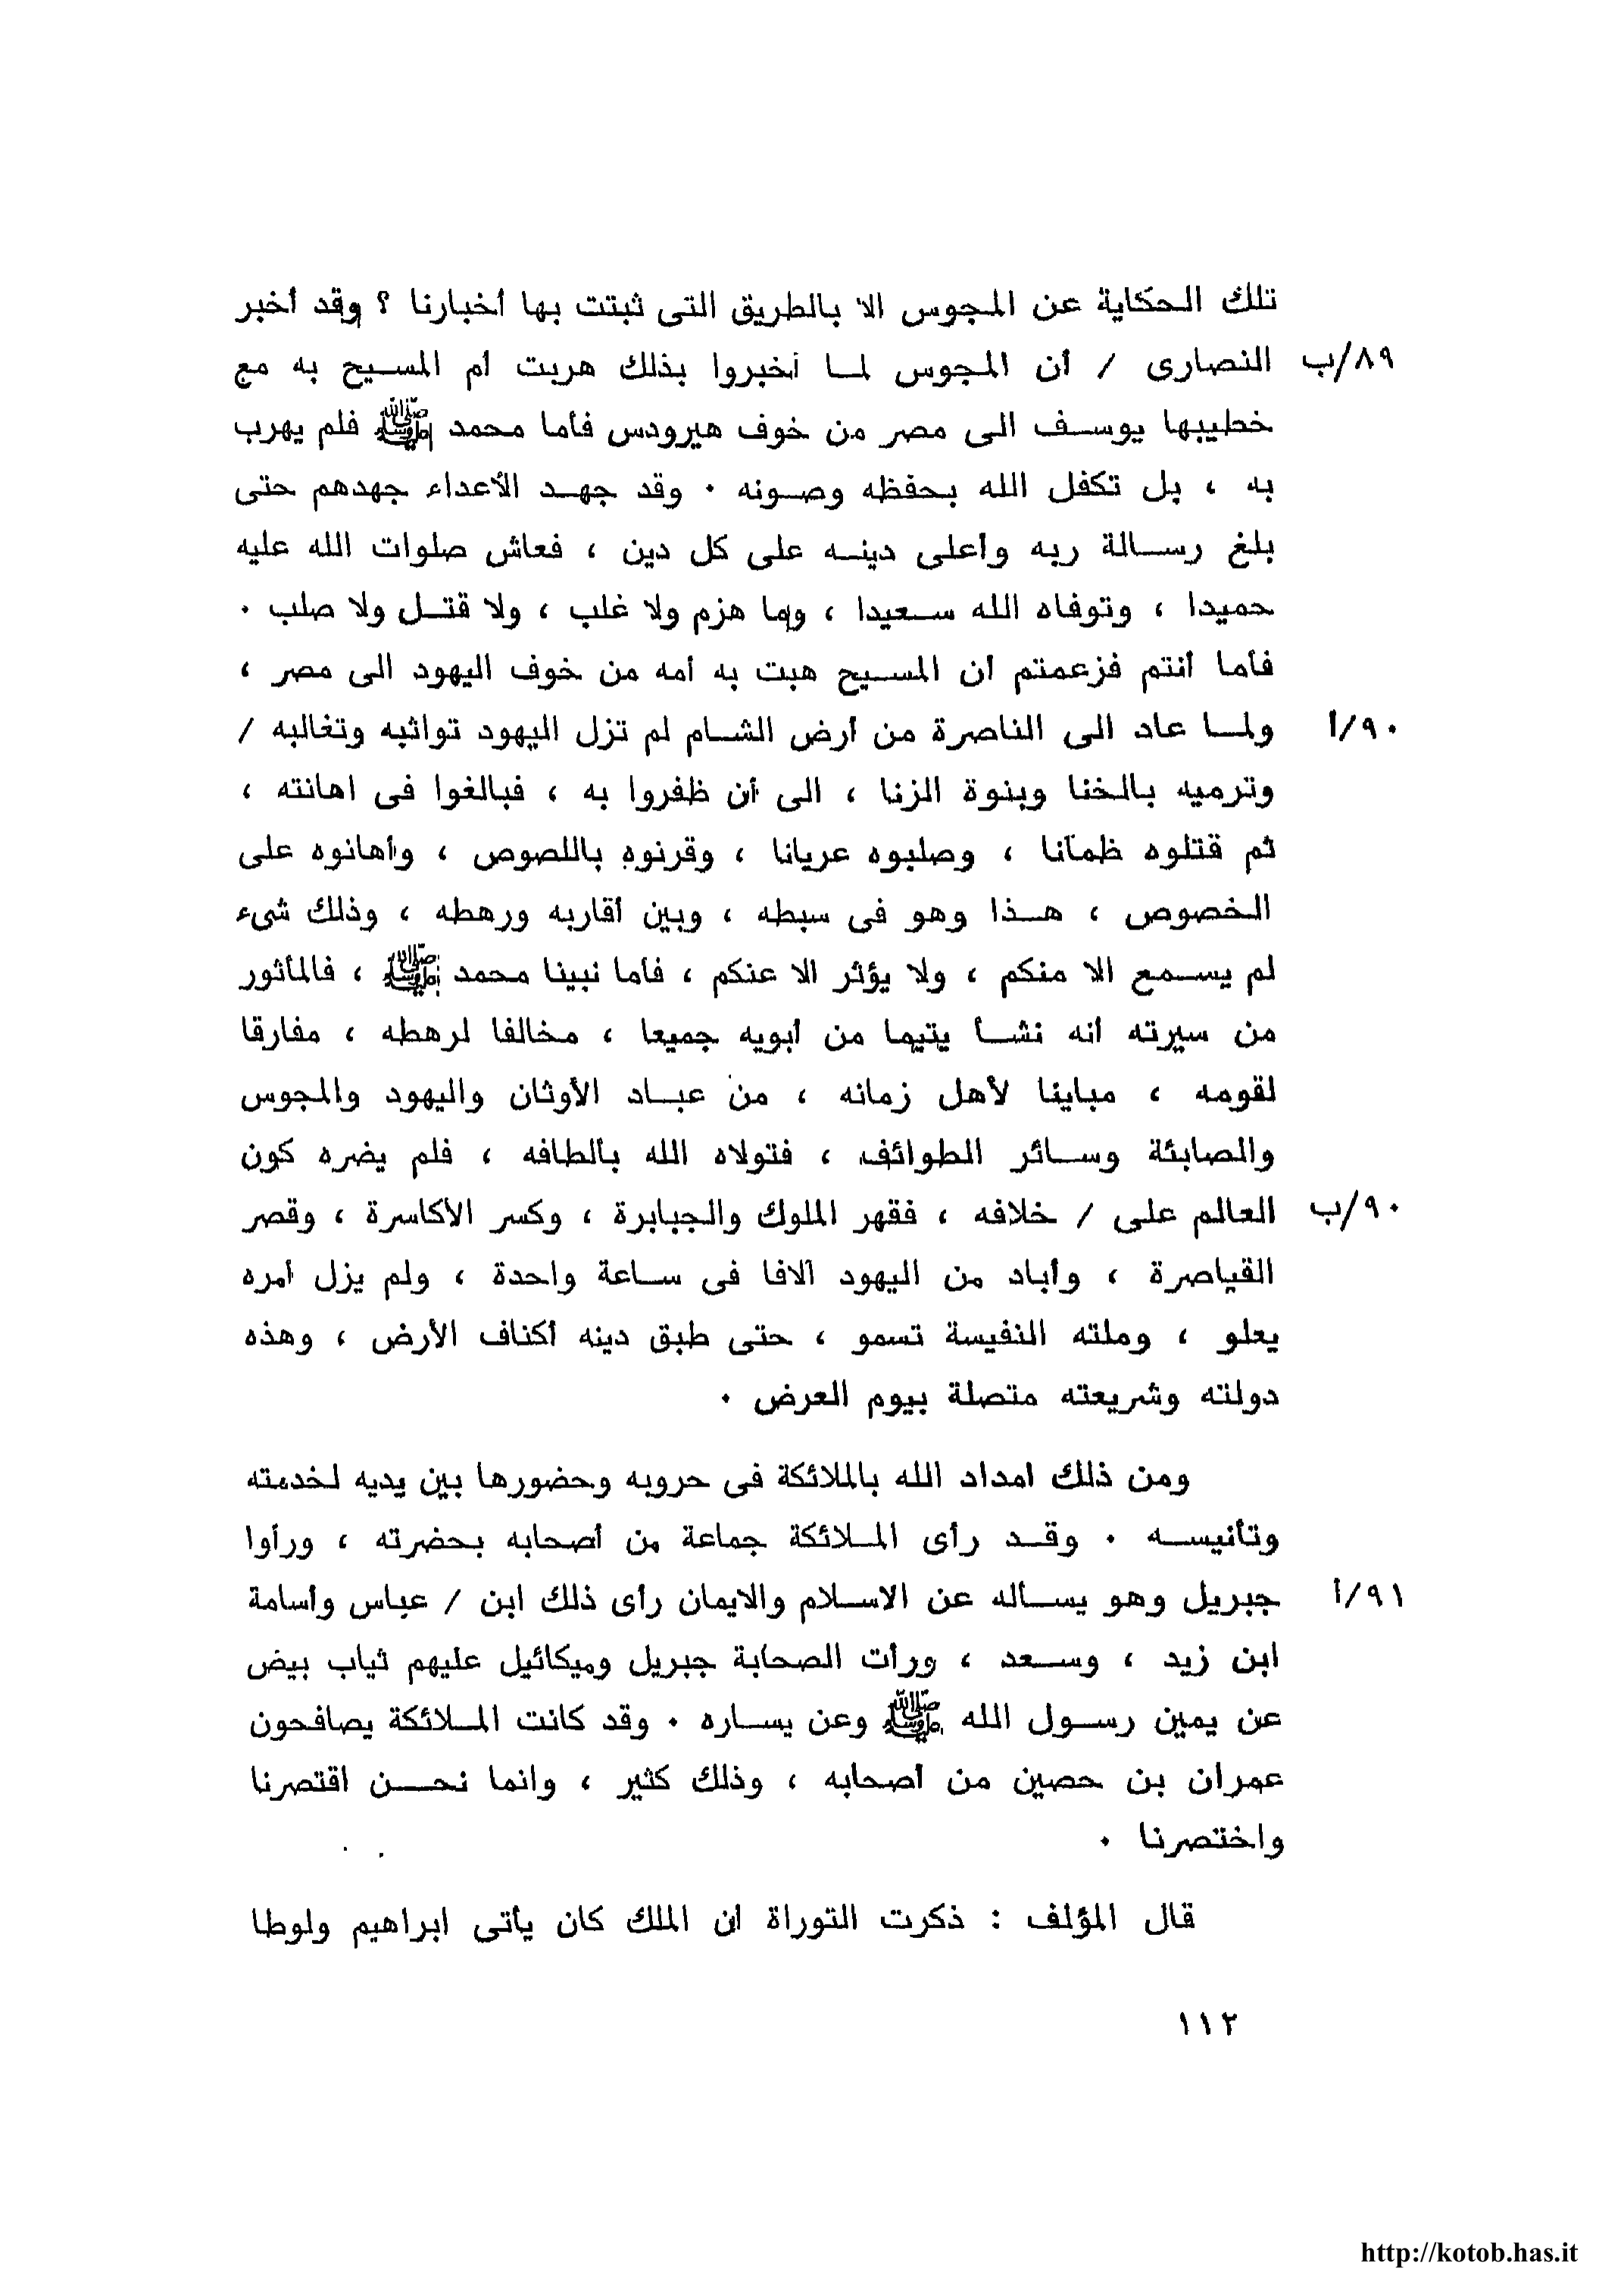 تلك الحكاية عن المجوس الا بالطريق التى ثبتت بها أخبارنا ؟ وقد أخبر
٨٩/ب النصارى / أن المجوس لما أخبروا بذلك هربت أم المسيح به مع
خطيبها يوسف الى مصر من خوف هيرودس فأما محمد ﷺ فلم يهرب
به ، بل تكفل الله بحفظه وصونه . وقد جهد الأعداء جهدهم حتى
بلغ رسالة ربه وأعلى دينه على كل دين ، فعاش صلوات الله عليه
حميدا ، وتوفاه الله سعيدا ، وما هزم ولا غلب ، ولا قتل ولا صلب .
فأما أنتم فزعمتم أن المسيح هبت به أمه من خوف اليهود الى مصر ،
٩٠/أ ولما عاد الى الناصرة من أرض الشام لم تزل اليهود تواثبه وتغالبه /
وترميه بالخنا وبنوة الزنا ، الى أن ظفروا به ، فبالغوا فى اهانته ،
ثم قتلوه ظمآنا ، وصلبوه عريانا ، وقرنوه باللصوص ، وأهانوه على
الخصوص ، هذا وهو فى سبطه ، وبين أقاربه ورهطه ، وذلك شىء
لم يسمع الا منكم ، ولا يؤثر الا عنكم ، فأما نبينا محمد ﷺ ، فالمأثور
من سيرته أنه نشأ يتيما من أبويه جميعا ، مخالفا لرهطه ، مفارقا
لقومه ، مباينا لأهل زمانه ، من عباد الأوثان واليهود والمجوس
والصابئة وسائر الطوائف ، فتولاه الله بالطافه ، فلم يضره كون
٩٠/ب العالم على / خلافه ، فقهر الملوك والجبابرة ، وكسر الأكاسرة ، وقصر
القياصرة ، وأباد من اليهود آلافا فى ساعة واحدة ، ولم يزل أمره
يعلو ، وملته النفيسة تسمو ، حتى طبق دينه أكناف الأرض ، وهذه
دولته وشريعته متصلة بيوم العرض .
ومن ذلك امداد الله بالملائكة فى حروبه وحضورها بين يديه لخدمته
وتأنيسه . وقد رأى الملائكة جماعة من أصحابه بحضرته ، ورأوا
٩١/أ جبريل وهو يسأله عن الاسلام والايمان رأى ذلك ابن / عباس وأسامة
ابن زيد ، وسعد ، ورأت الصحابة جبريل وميكائيل عليهم ثياب بيض
عن يمين رسول الله ﷺ وعن يساره . وقد كانت الملائكة يصافحون
عمران بن حصين من أصحابه ، وذلك كثير ، وانما نحن اقتصرنا
واختصرنا .
قال المؤلف : ذكرت التوراة ان الملك كان يأتى ابراهيم ولوطا
١١٢
http://kotob.has.it